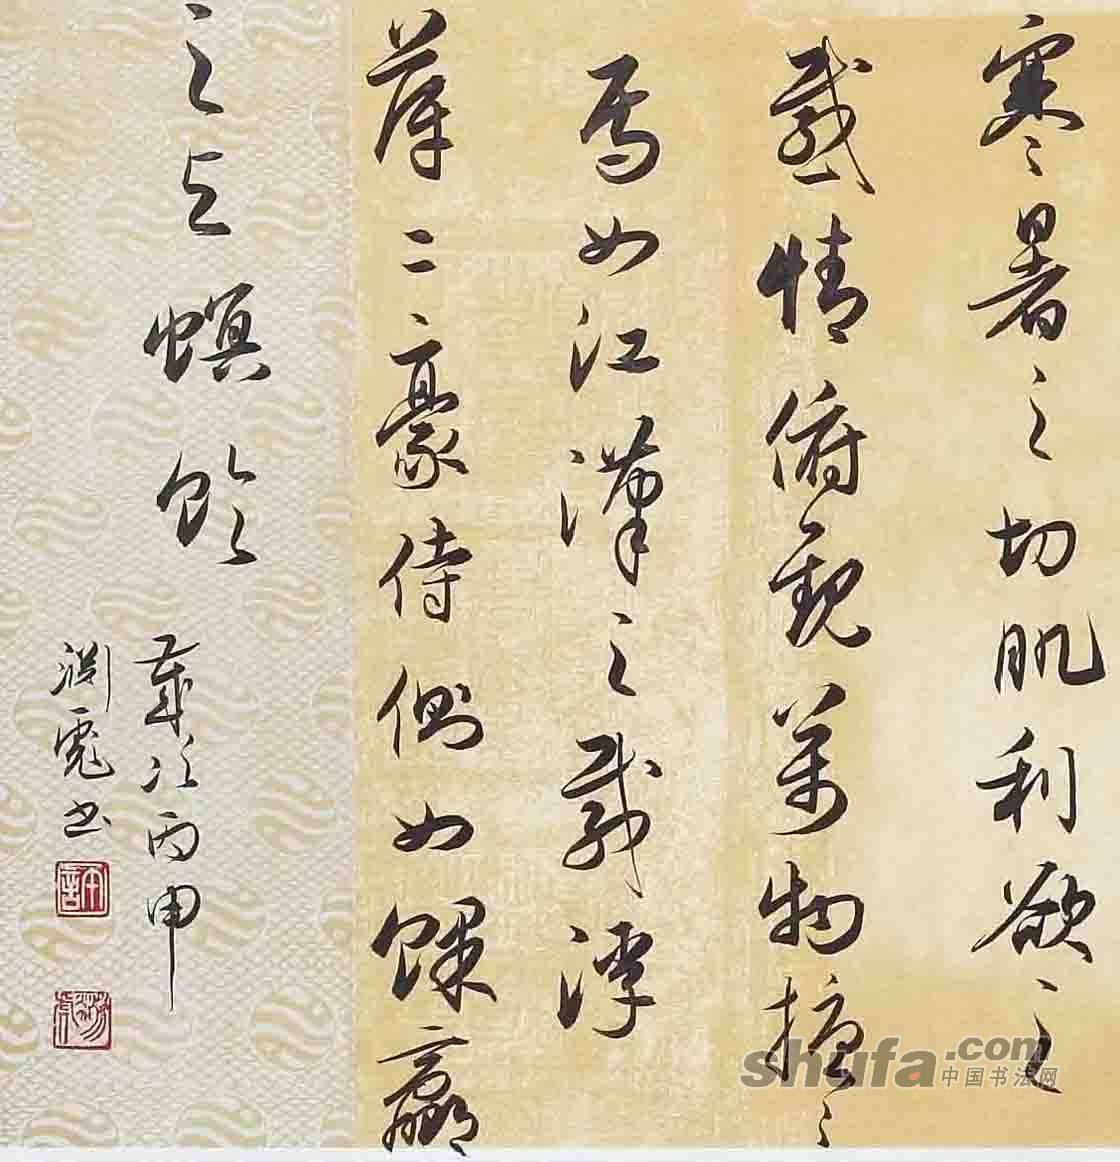 寒暑之切肌利欲之
感情俯觀萬物擾々
焉如江漢之載浮
萍二豪侍側如蜾蠃
之与螟蛉
歲次丙申
渊书
shufa.com
中国书法网